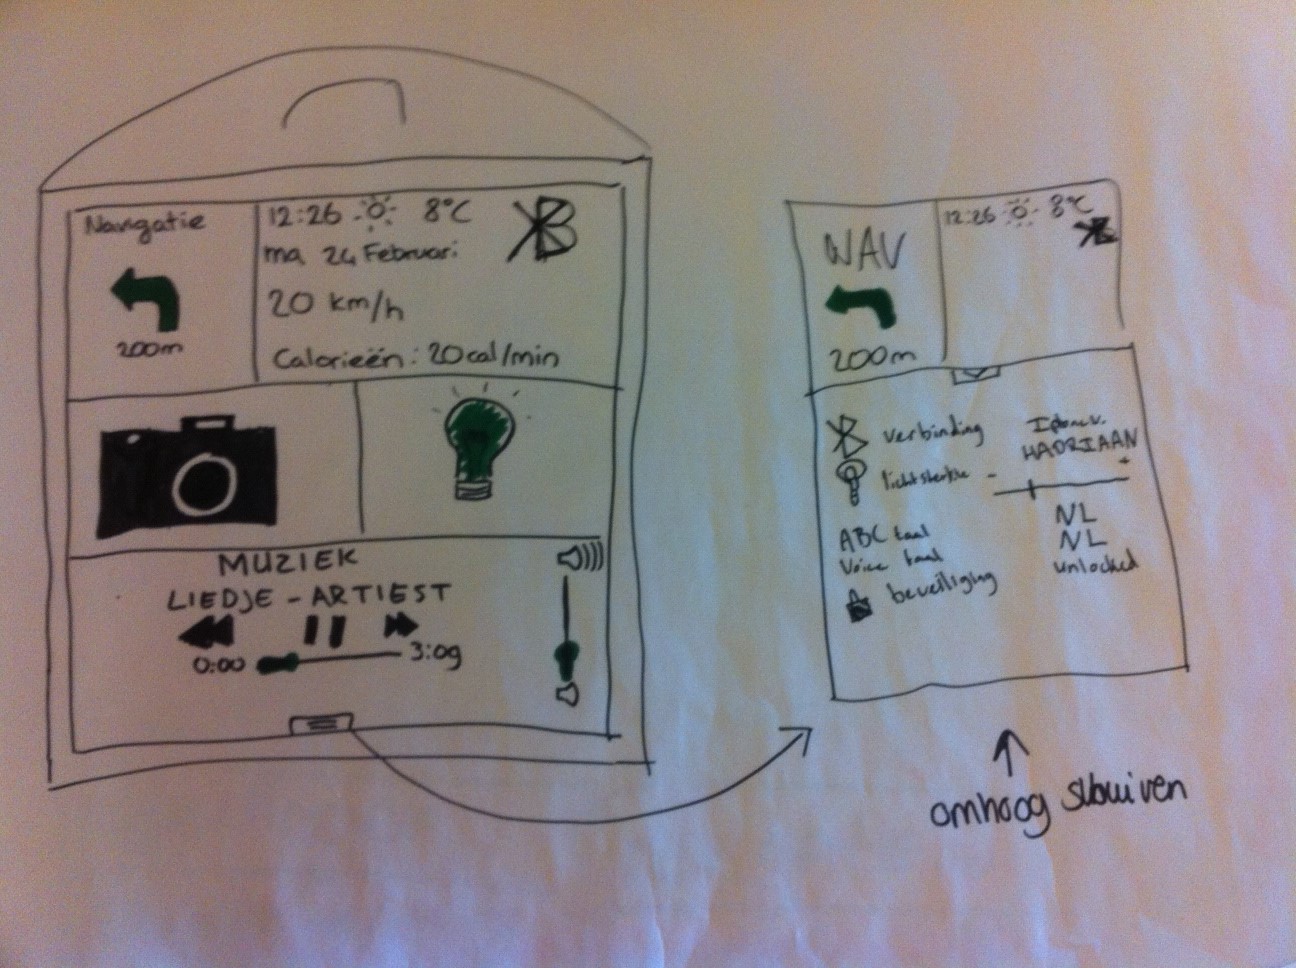 Navigatie
200m
12:26 8°C
ma 24 Februari
20 km/h
Calorieën: 20cal/min
MUZIEK
LIEDJE - ARTIEST
0:00 3:09
NAV
200m
12:26 8°C
verbinding
HADRIAAN
lichtsterkte - +
ABC taal NL
Voice taal NL
beveiliging unlocked
omhoog schuiven